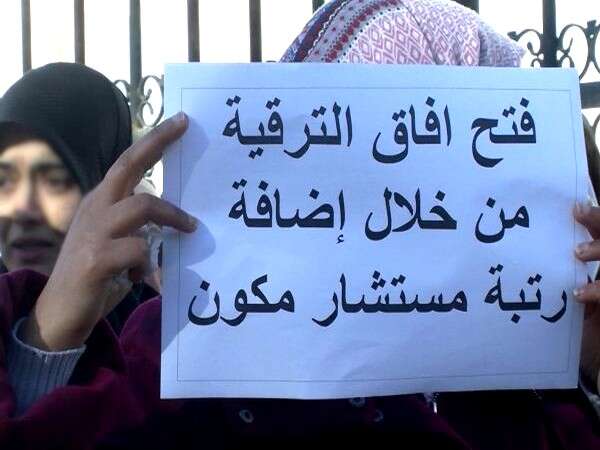 فتح افاق الترقية
من خلال إضافة
رتبة مستشار مكون